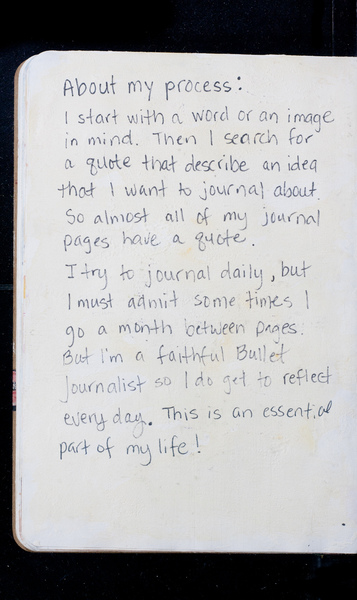 About my process:
I start with a word or an image
in mind. Then I search for
a quote that describe an idea
that I want to journal about.
So almost all of my journal
pages have a quote.
I try to journal daily, but
I must admit some times I
go a month between pages.
But I'm a faithful Bullet
Journalist so I do get to reflect
every day. This is an essential
part of my life!